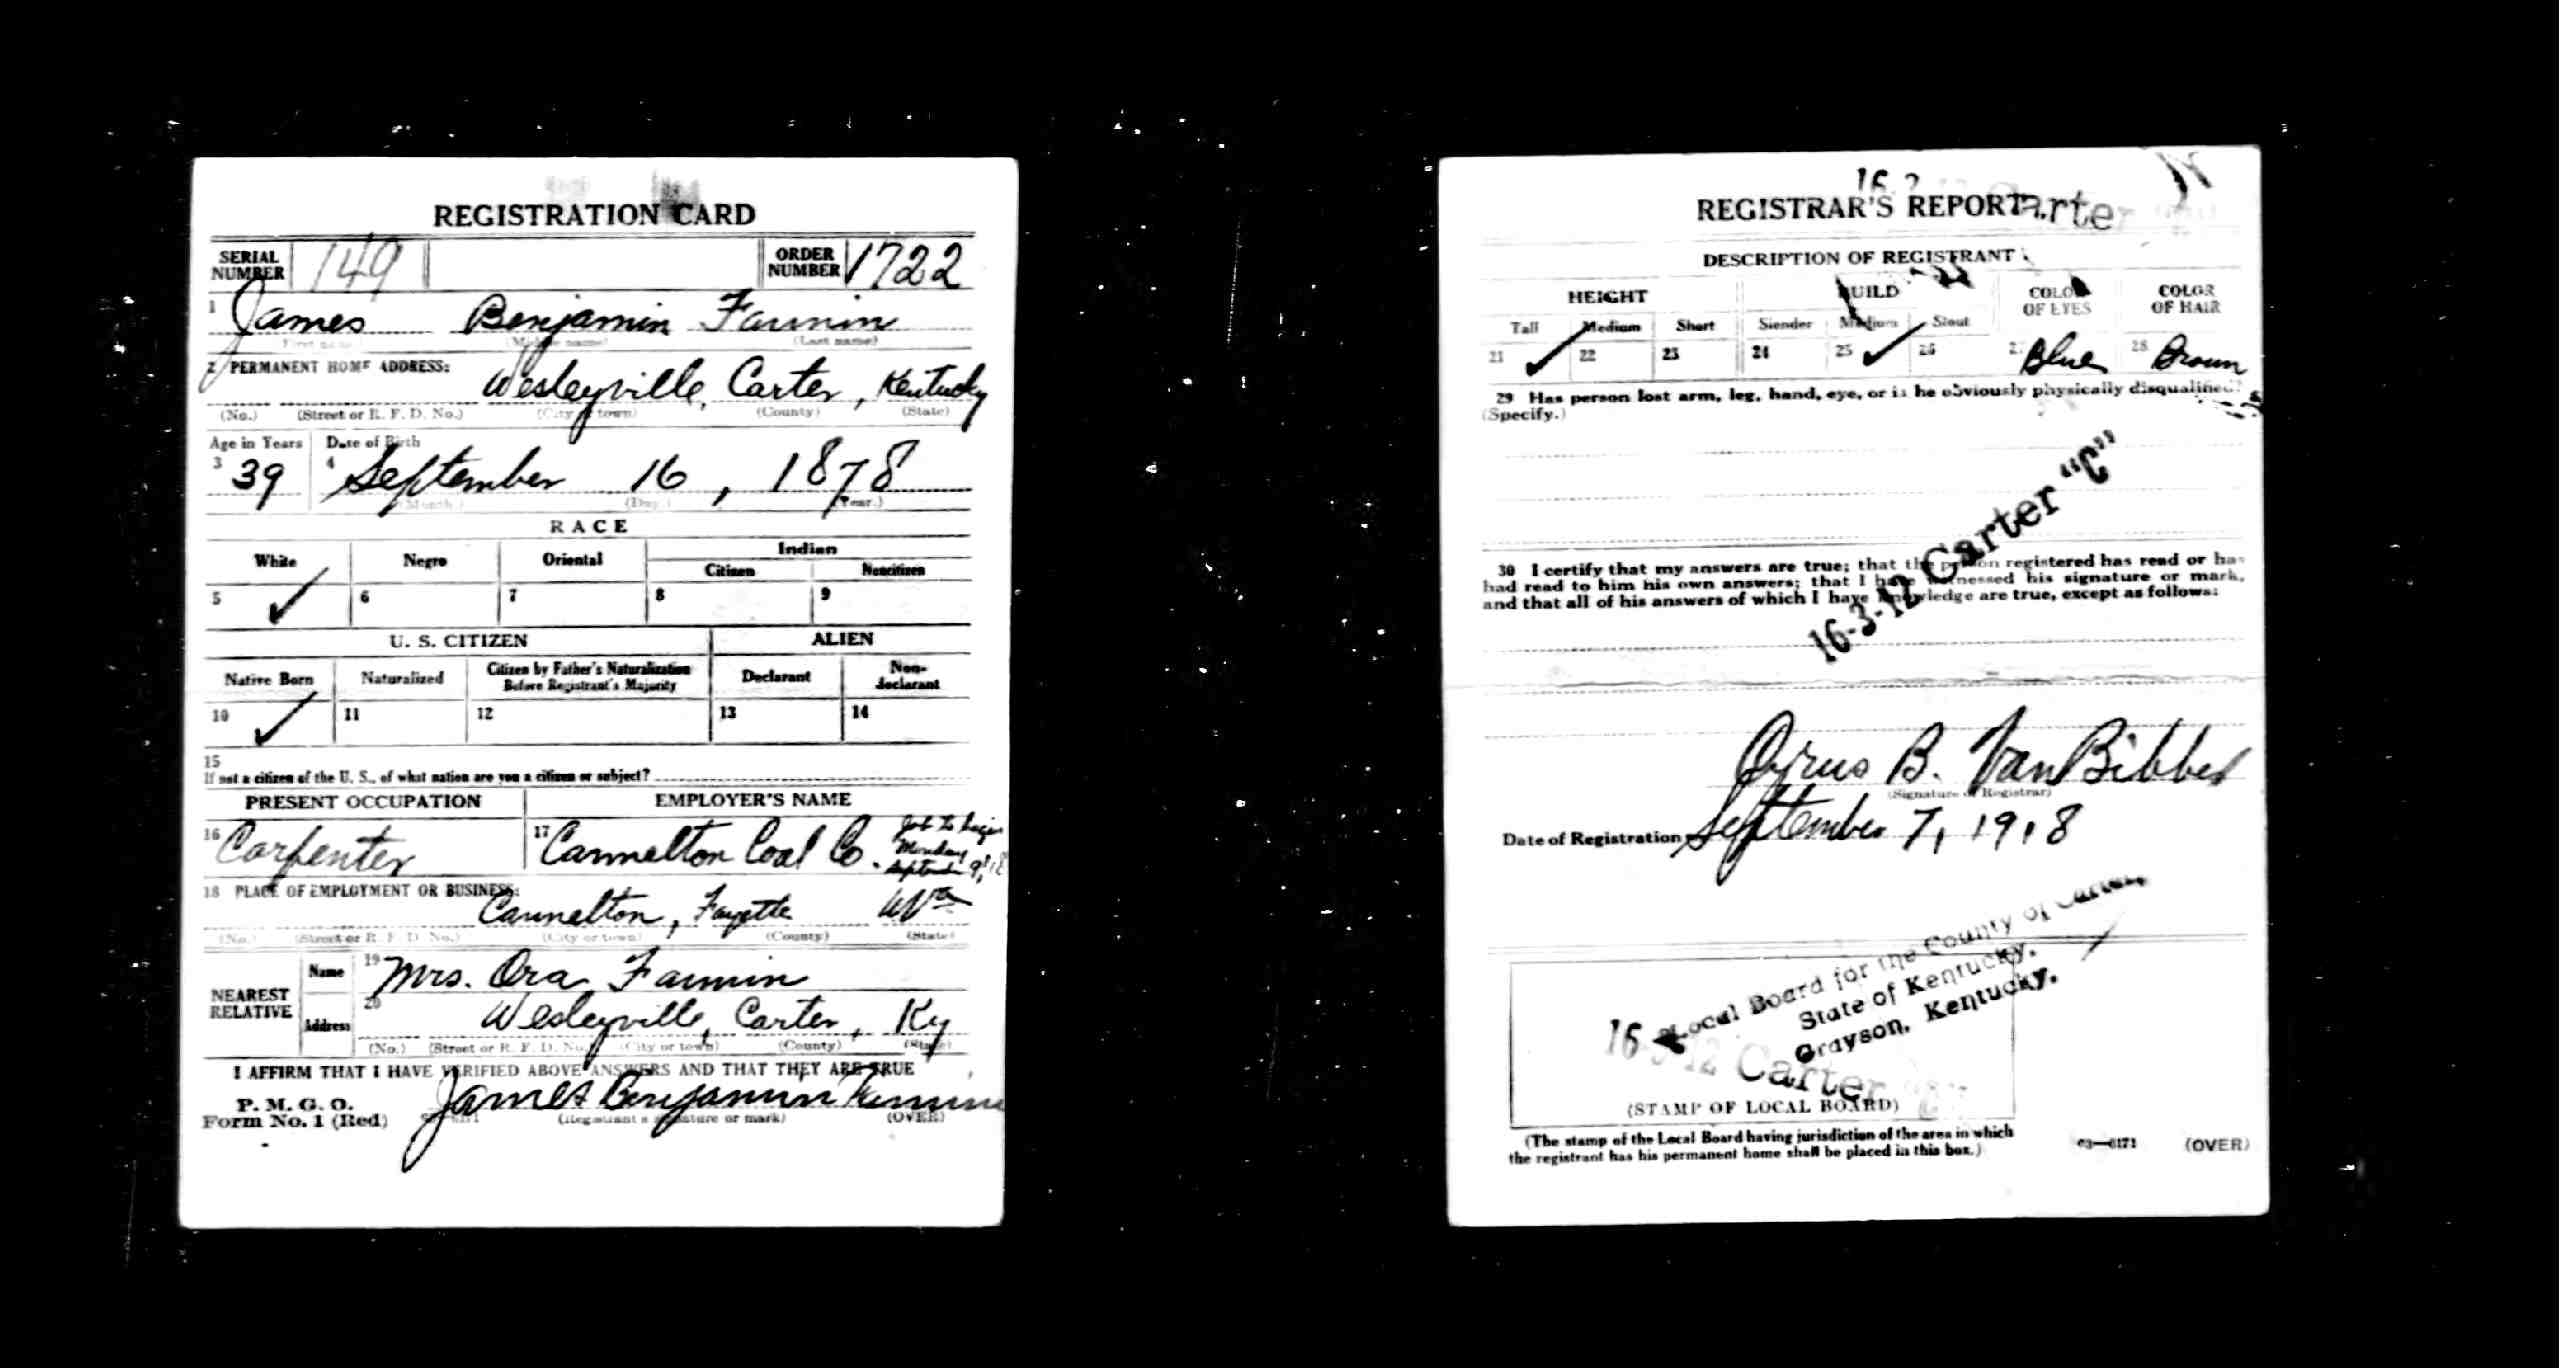 REGISTRATION CARD
SERIAL NUMBER 149 ORDER NUMBER 1722
1 James Benjamin Fannin
(First name) (Middle name) (Last name)
2 PERMANENT HOME ADDRESS: Wesleyville, Carter, Kentucky
(No.) (Street or R. F. D. No.) (City or town) (County) (State)
Age in Years Date of Birth
3 39 4 September 16, 1878
(Month.) (Day.) (Year.)
RACE
White Negro Oriental Indian
Citizen Noncitizen
5 ✓ 6 7 8 9
U. S. CITIZEN ALIEN
Native Born Naturalized Citizen by Father's Naturalization Before Registrant's Majority Declarant Non-declarant
10 ✓ 11 12 13 14
15
If not a citizen of the U. S., of what nation are you a citizen or subject?
PRESENT OCCUPATION EMPLOYER'S NAME
16 Carpenter 17 Cannelton Coal Co. Job to begin Monday September 9, 18
18 PLACE OF EMPLOYMENT OR BUSINESS: Cannelton, Fayette WVa
(No.) (Street or R. F. D. No.) (City or town) (County) (State)
NEAREST RELATIVE Name 19 Mrs. Ora Fannin
Address 20 Wesleyville, Carter, Ky
(No.) (Street or R. F. D. No.) (City or town) (County) (State)
I AFFIRM THAT I HAVE VERIFIED ABOVE ANSWERS AND THAT THEY ARE TRUE
P. M. G. O.
Form No. 1 (Red) James Benjamin Fannin
(Registrant's signature or mark) (OVER)
REGISTRAR'S REPORT
DESCRIPTION OF REGISTRANT
HEIGHT BUILD COLOR OF EYES COLOR OF HAIR
Tall Medium Short Slender Medium Stout
21 ✓ 22 23 24 25 ✓ 26 27 Blue 28 Brown
29 Has person lost arm, leg, hand, eye, or is he obviously physically disqualified?
(Specify.)
16-3-12 Carter "C"
30 I certify that my answers are true; that the person registered has read or has
had read to him his own answers; that I have witnessed his signature or mark,
and that all of his answers of which I have knowledge are true, except as follows:
Cyrus B. VanBibber
(Signature of Registrar)
Date of Registration September 7, 1918
Local Board for the County of Carter,
State of Kentucky.
Grayson, Kentucky.
16-3-12 Carter
(STAMP OF LOCAL BOARD)
(The stamp of the Local Board having jurisdiction of the area in which
the registrant has his permanent home shall be placed in this box.)
03—6171 (OVER)